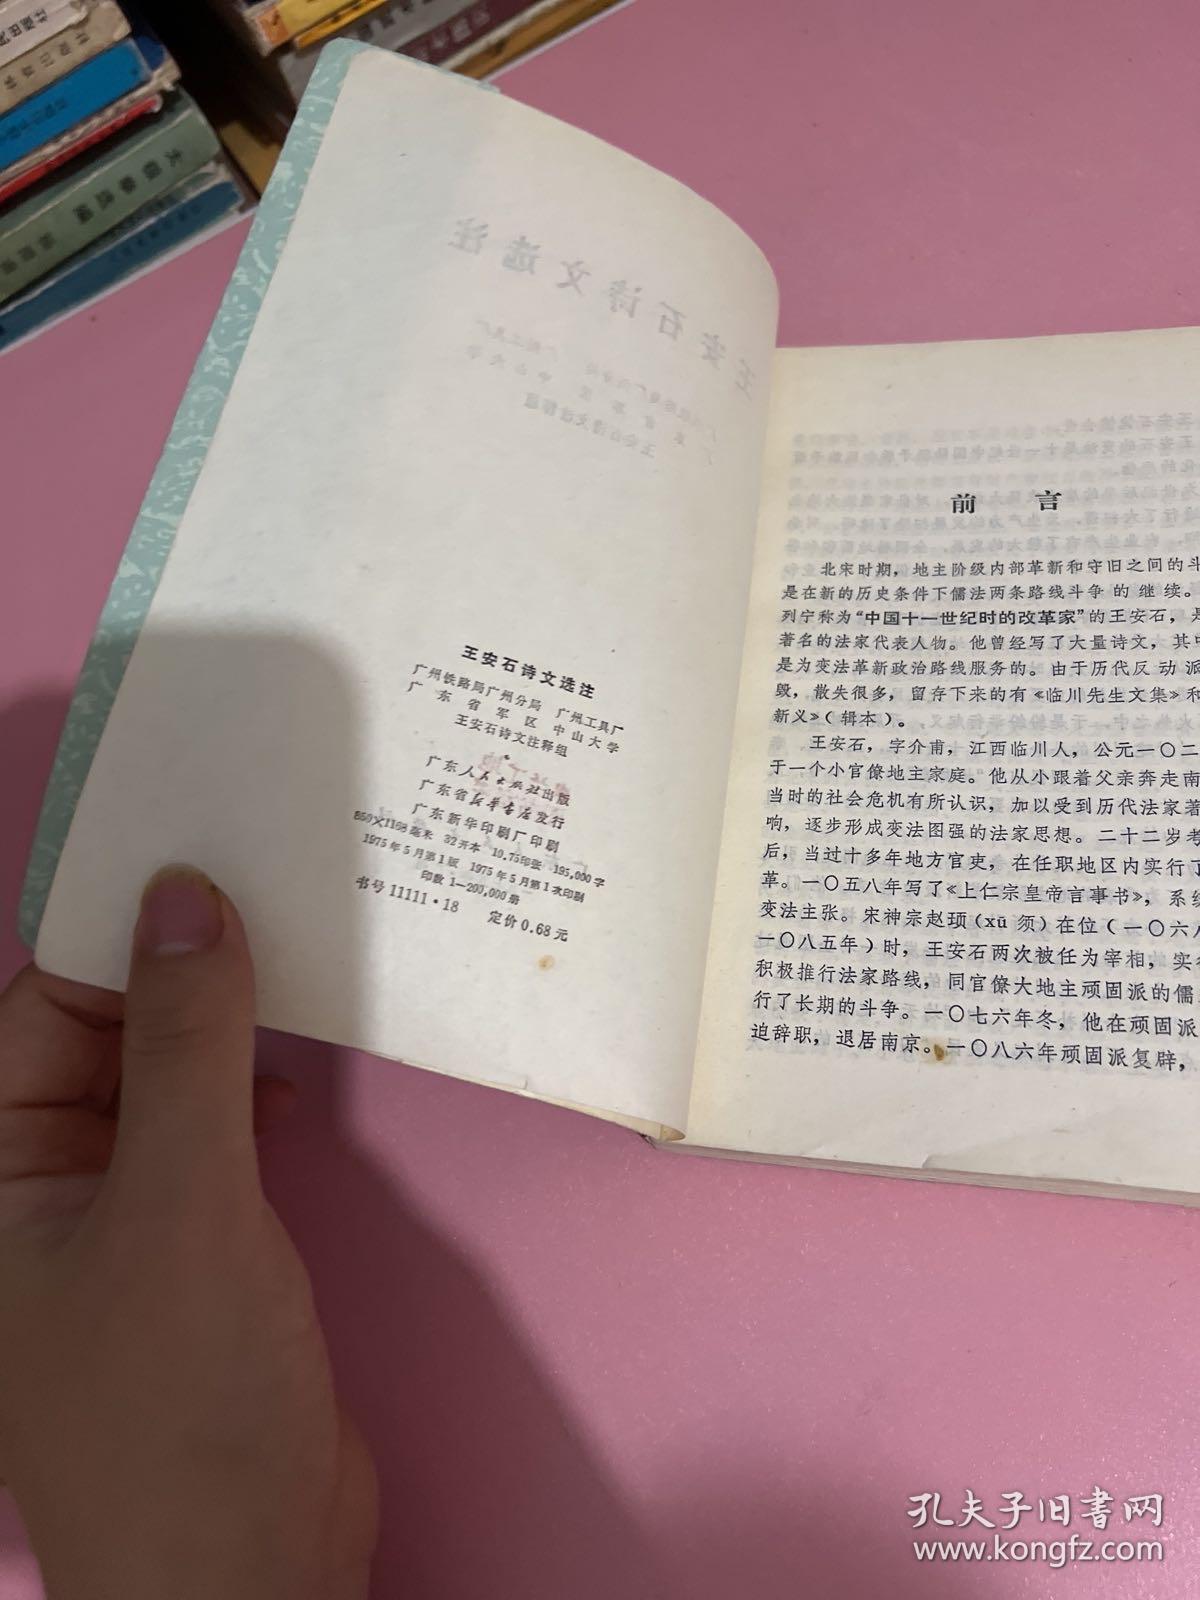 王安石诗文选注
广州铁路局广州分局 广州工具厂
广东省军区 中山大学
王安石诗文注释组
广东人民出版社出版
广东省新华书店发行
广东新华印刷厂印刷
850×1168毫米 32开本 10.75印张 195,000字
1975年5月第1版 1975年5月第1次印刷
印数 1—200,000册
书号 11111·18 定价 0.68 元
前言
北宋时期，地主阶级内部革新和守旧之间的斗
是在新的历史条件下儒法两条路线斗争的继续。
列宁称为“中国十一世纪时的改革家”的王安石，是
著名的法家代表人物。他曾经写了大量诗文，其中
是为变法革新政治路线服务的。由于历代反动派
毁，散失很多，留存下来的有《临川先生文集》和
新义》（辑本）。
王安石，字介甫，江西临川人，公元一〇二
于一个小官僚地主家庭。他从小跟着父亲奔走南
当时的社会危机有所认识，加以受到历代法家著
响，逐步形成变法图强的法家思想。二十二岁考
后，当过十多年地方官吏，在任职地区内实行了
革。一〇五八年写了《上仁宗皇帝言事书》，系统
变法主张。宋神宗赵顼（xū 须）在位（一〇六八
一〇八五年）时，王安石两次被任为宰相，实行
积极推行法家路线，同官僚大地主顽固派的儒
行了长期的斗争。一〇七六年冬，他在顽固派
迫辞职，退居南京。一〇八六年顽固派复辟，
孔夫子旧书网
www.kongfz.com